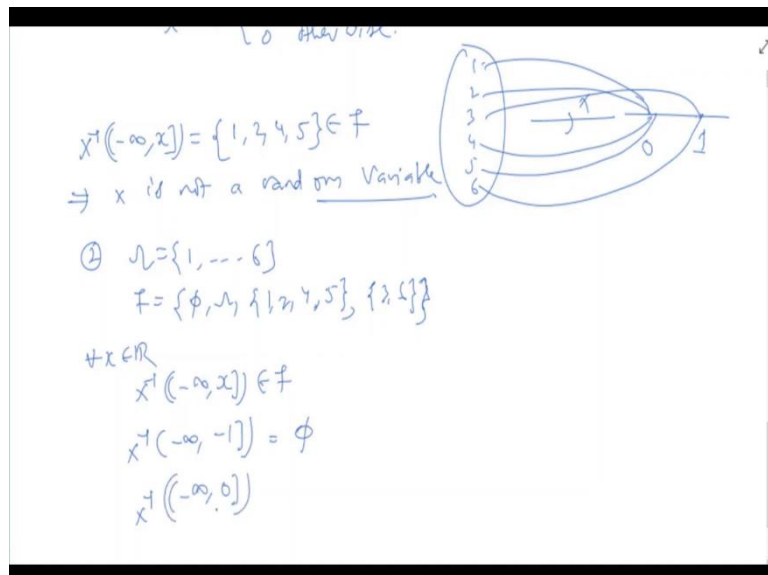 X { 0 otherwise.
1
2
3
4
5
6
X
0 1
X⁻¹(-∞,x]) = {1,2,4,5} ∈ F
⇒ X is not a random Variable
② Ω={1,---6}
F={φ,Ω,{1,2,4,5},{3,6}}
∀x∈ℝ
X⁻¹((-∞,x]) ∈ F
X⁻¹(-∞,-1]) = φ
X⁻¹((-∞,0])